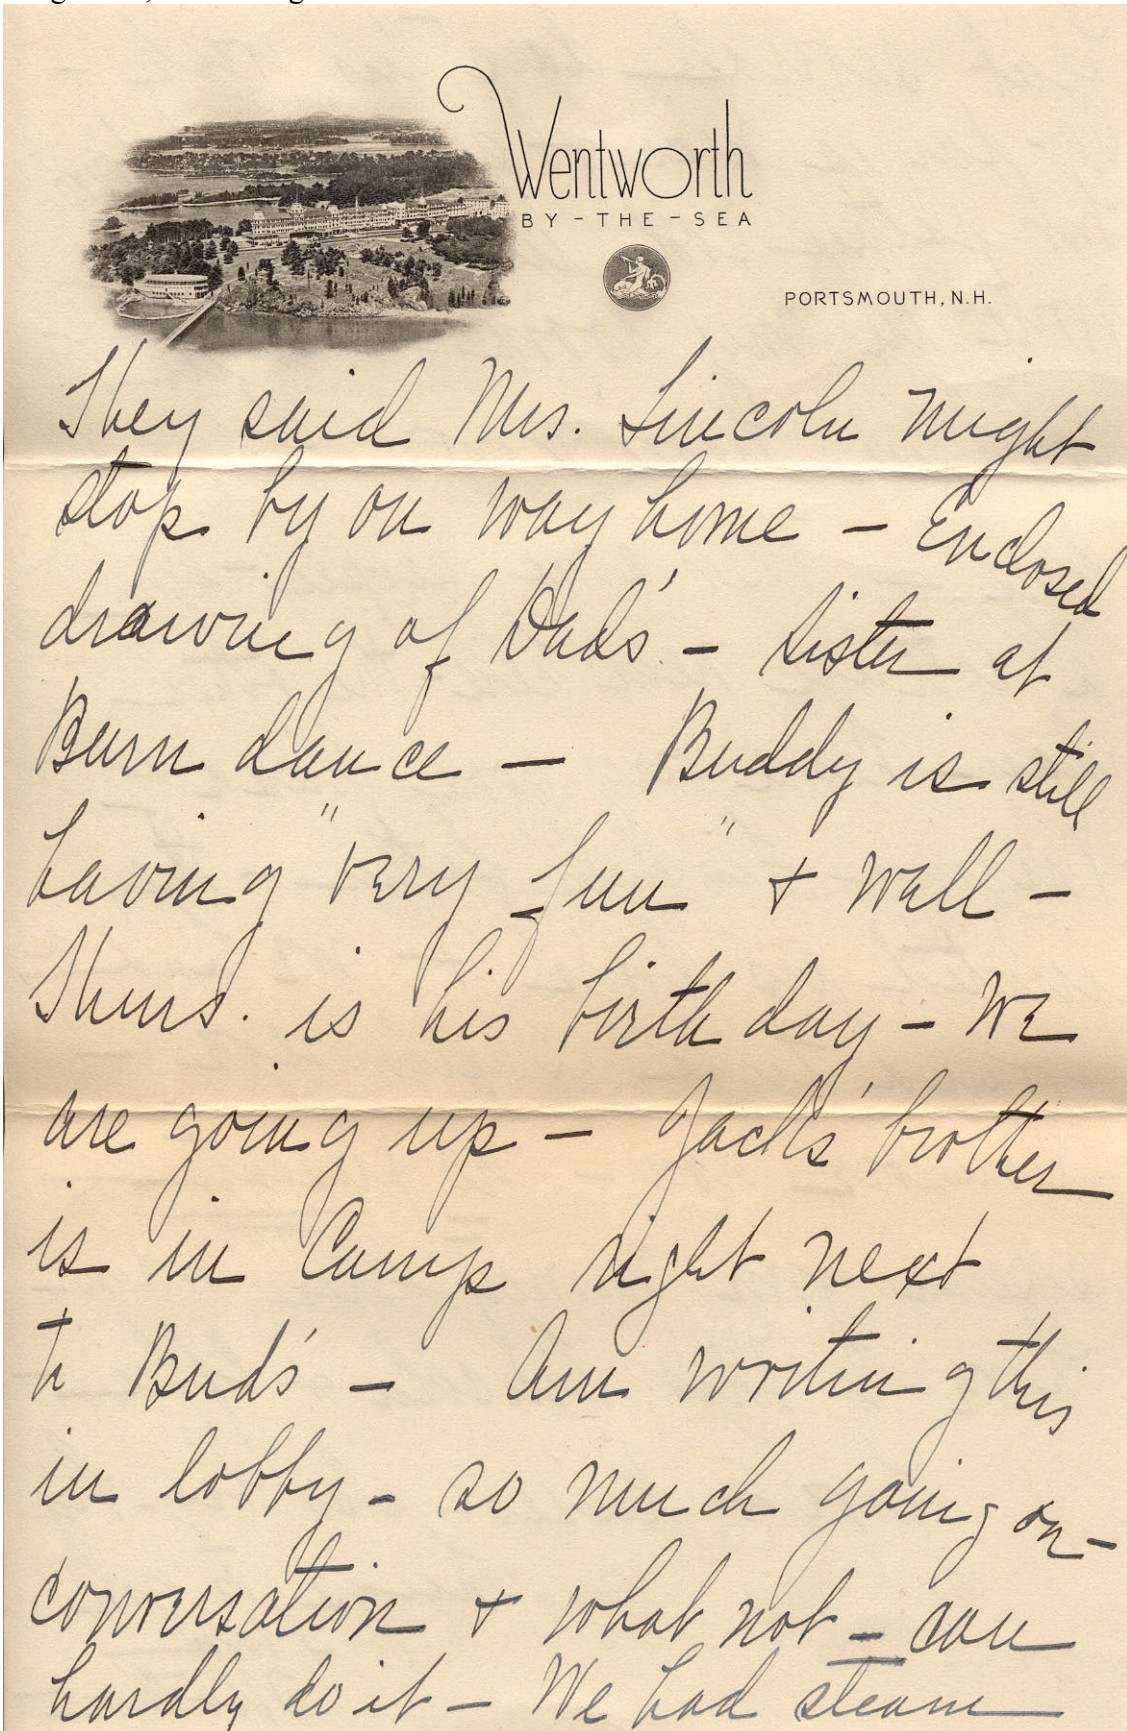 Wentworth
BY-THE-SEA
PORTSMOUTH, N.H.
They said Mrs. Lincoln might
stop by on way home - Enclosed
drawing of Dad's - Sister at
Barn dance - Buddy is still
having "very fun" + well -
Thurs. is his birthday - We
are going up - Jack's brother
is in Camp right next
to Bud's - Am writing this
in lobby - so much going on -
conversation + what not - can
hardly do it - We had steam